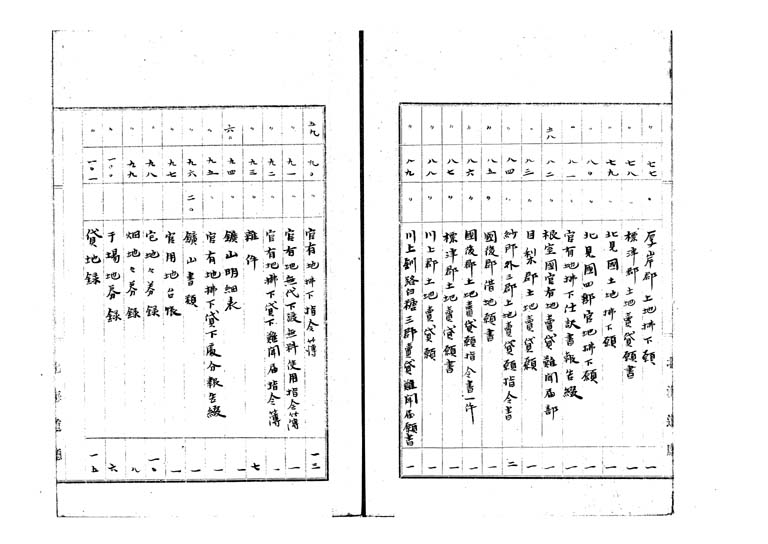 〃 七七 〃 厚岸郡土地拂下願 一
〃 七八 〃 標津郡土地賣貸願書 一
〃 七九 〃 北見國土地拂下願 一
〃 八〇 〃 北見國四郡官地拂下願 一
〃 八一 〃 官有地拂下仕訳書報告綴 一
五八 八二 〃 根室國官有地賣貸難聞届部 一
〃 八三 〃 目梨郡土地賣貸願 一
〃 八四 〃 紗那外三郡土地賣貸願指令書 二
〃 八五 〃 國後郡借地願書 一
〃 八六 〃 國後郡土地賣貸願指令書一件 一
〃 八七 〃 標津郡土地賣貸願書 一
〃 八八 〃 川上郡土地賣貸願 一
〃 八九 〃 川上釧路白糠三郡賣貸難聞届願書 一
五九 九〇 〃 官有地拂下指令簿 一三
〃 九一 〃 官有地無代下渡無料使用指令簿 一
〃 九二 〃 官有地拂下貸下難聞届指令簿 一
〃 九三 〃 雜件 七
六〇 九四 〃 鑛山明細表 一
〃 九五 〃 官有地拂下貸下處分報告綴 一
〃 九六 二〇 鑛山書類 一
〃 九七 〃 官用地台帳 一
〃 九八 〃 宅地々券録 一〇
〃 九九 〃 畑地々券録 八
〃 一〇〇 〃 干場地券録 六
〃 一〇一 〃 貸地録 一五